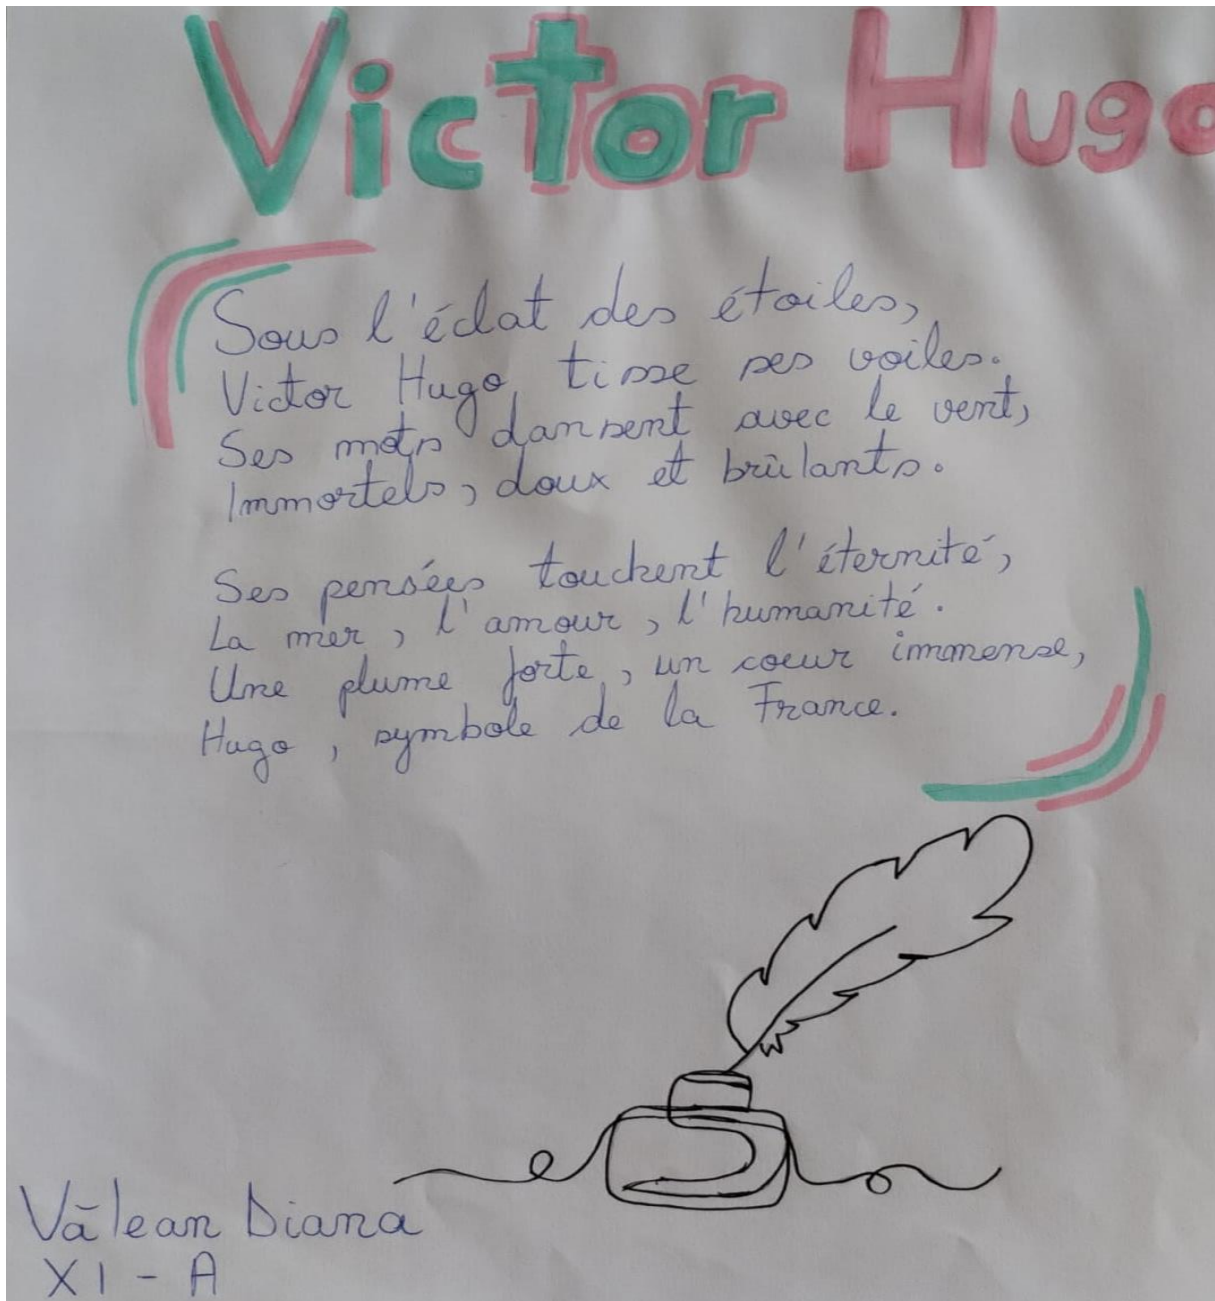 Victor Hugo
Sous l'éclat des étoiles,
Victor Hugo tisse ses voiles.
Ses mots dansent avec le vent,
Immortels, doux et brûlants.
Ses pensées touchent l'éternité,
La mer, l'amour, l'humanité.
Une plume forte, un coeur immense,
Hugo, symbole de la France.
Vălean Diana
XI - A